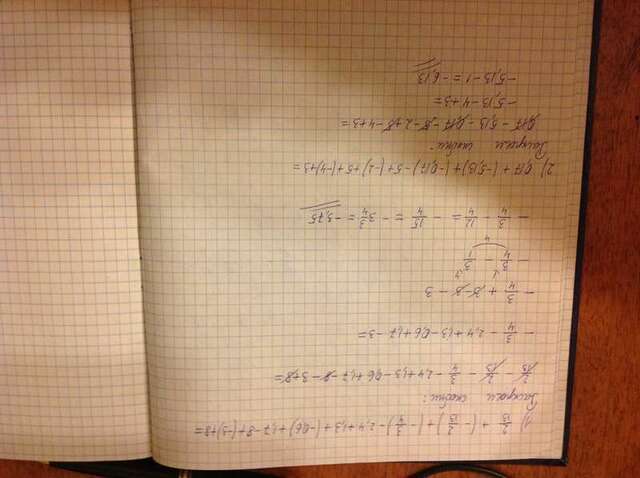 1) 2/13 + (- 2/13) + (- 3/4) - 2,4 + 1,3 + (-0,6) + 1,7 - 8 + (-3) + 8 =
Раскроем скобки:
2/13 - 2/13 - 3/4 - 2,4 + 1,3 - 0,6 + 1,7 - 8 - 3 + 8 =
- 3/4 - 2,4 + 1,3 - 0,6 + 1,7 - 3 =
- 3/4 + 3 - 3 - 3
- 3/4 - 3/1
4
- 3/4 - 12/4 = - 15/4 = - 3 3/4 = -3,75
2) 0,17 + (-5,13) + (-0,17) - 5 + (-2) + 5 + (-4) + 3 =
Раскроем скобки:
0,17 - 5,13 - 0,17 - 5 - 2 + 5 - 4 + 3 =
-5,13 - 4 + 3 =
-5,13 - 1 = -6,13